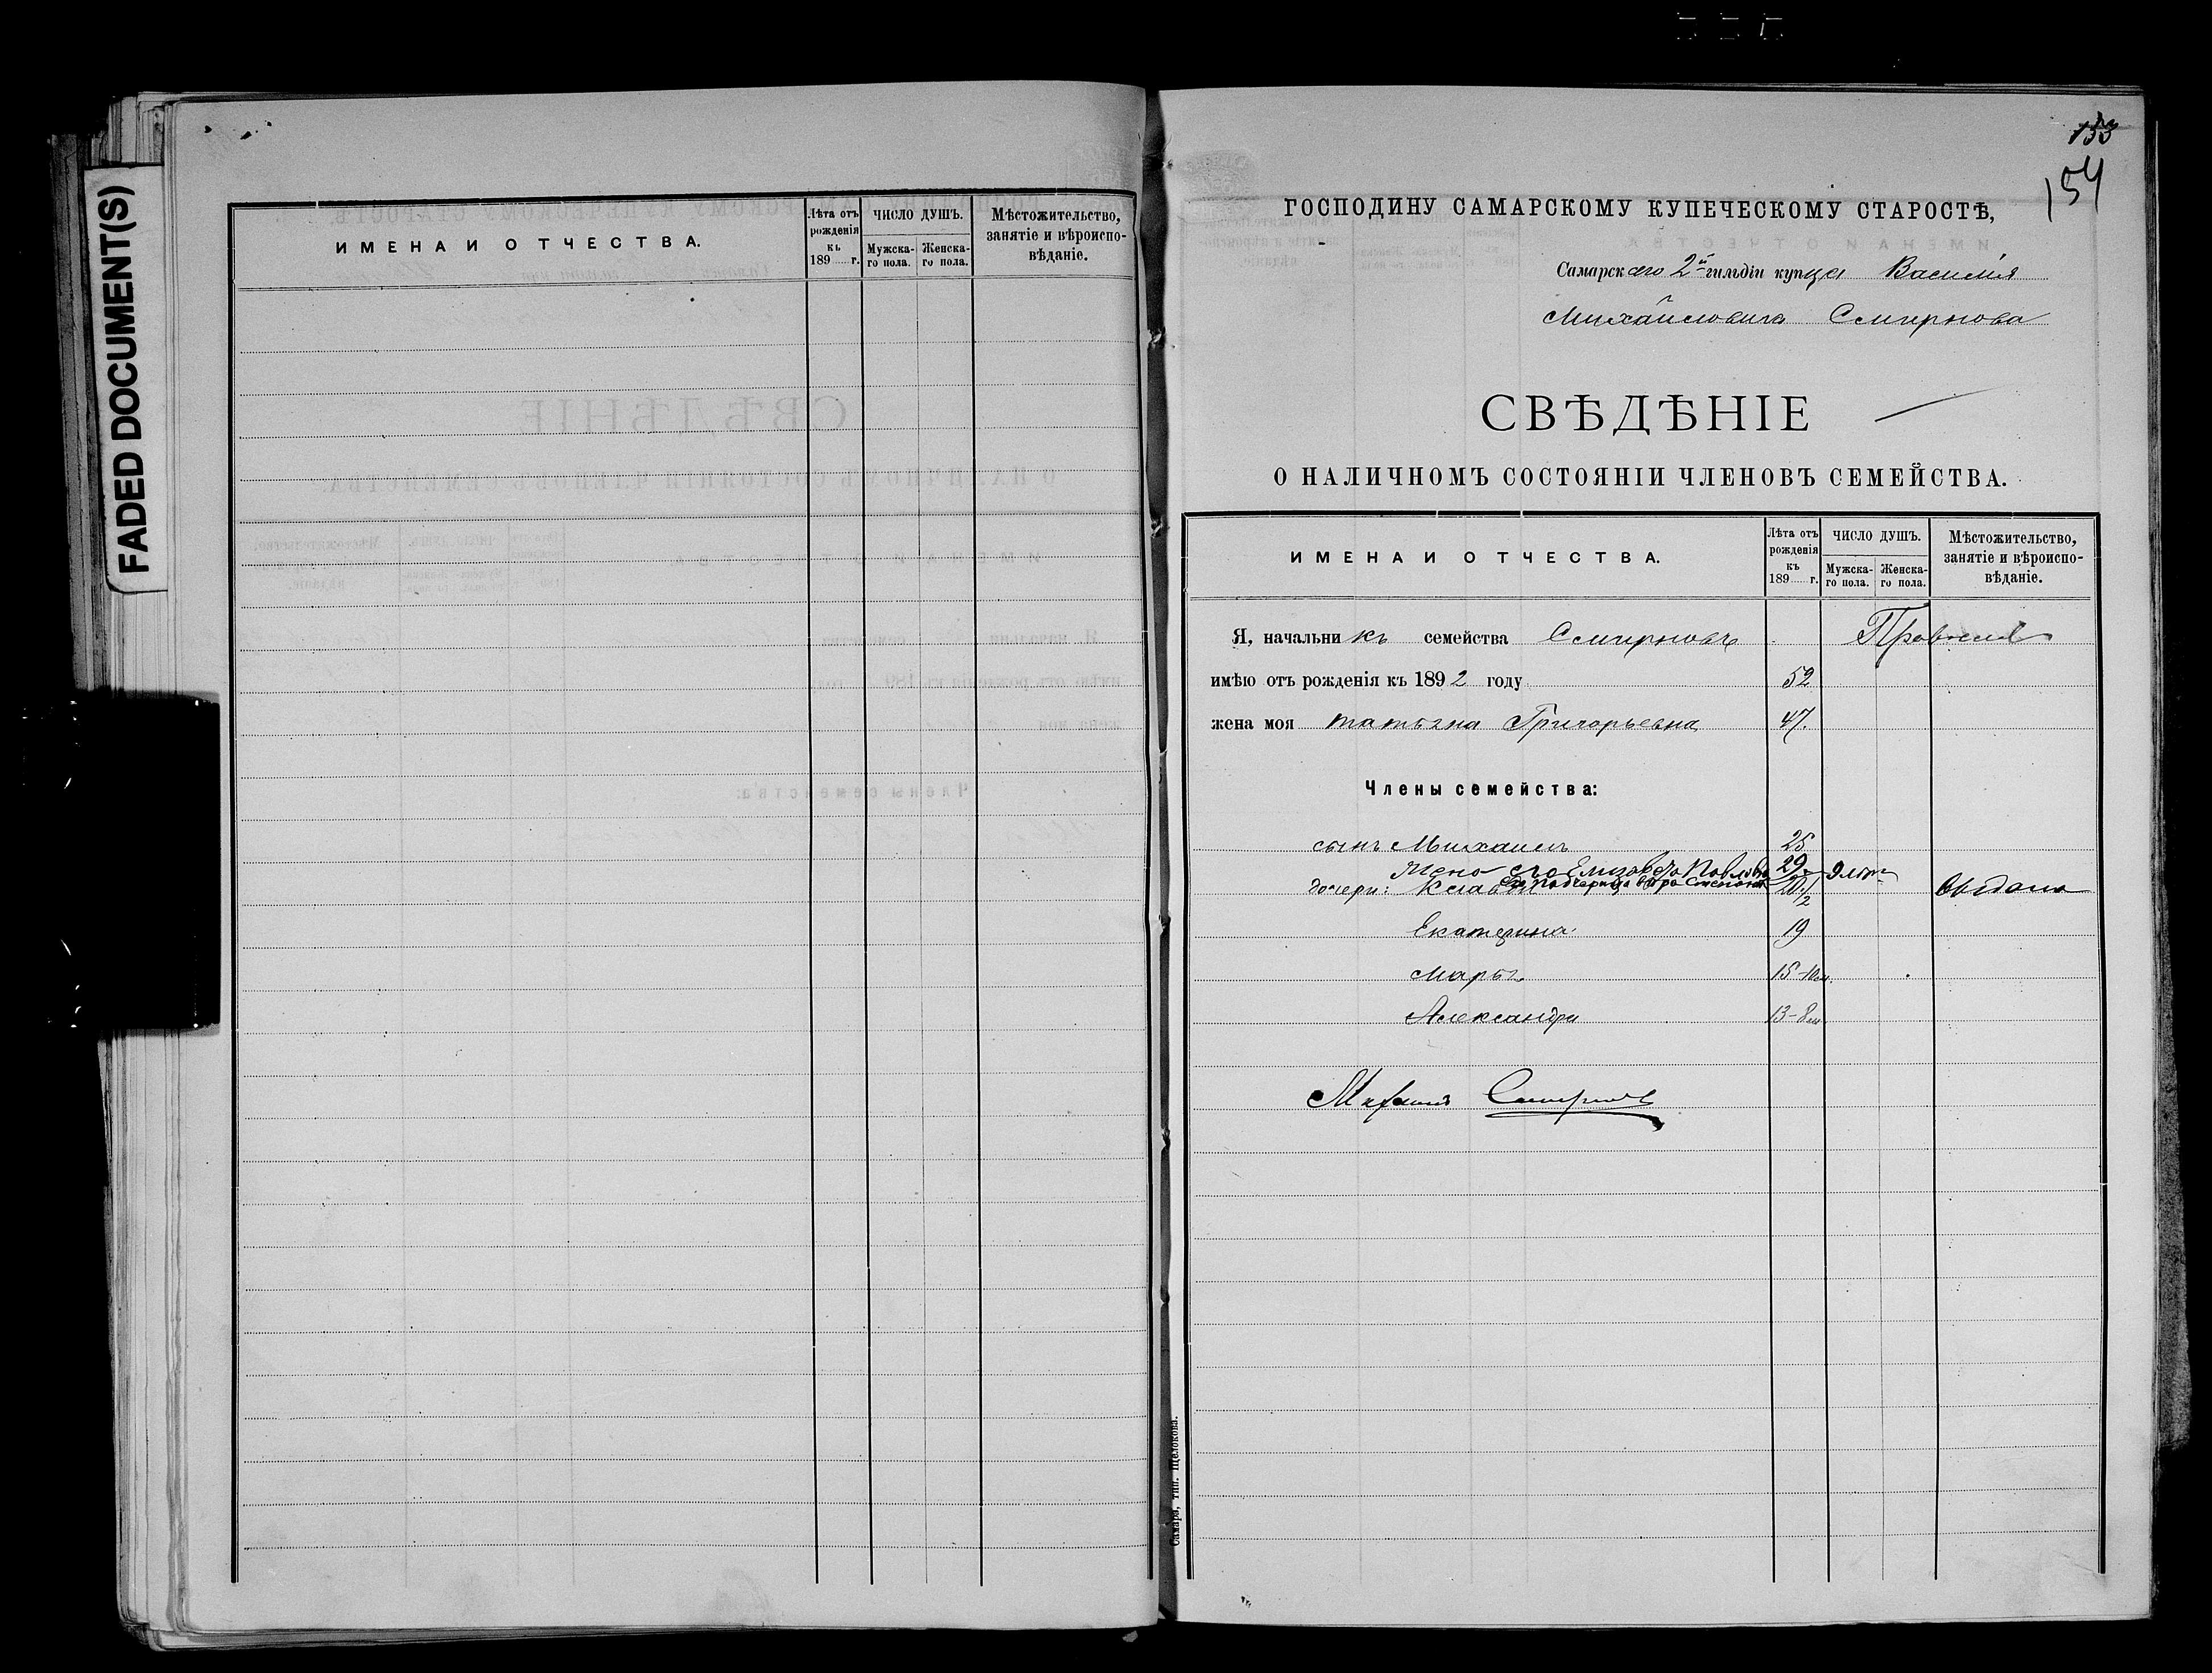 FADED DOCUMENT(S)
ИМЕНА И ОТЧЕСТВА.
Лѣта отъ рожденія къ 189 г.
ЧИСЛО ДУШЪ.
Мужска-го пола.
Женска-го пола.
Мѣстожительство, занятіе и вѣроиспо-вѣданіе.
133
154
ГОСПОДИНУ САМАРСКОМУ КУПЕЧЕСКОМУ СТАРОСТѢ,
Самарскаго 2й гильдіи купца Василія
Михайловича Смирнова
СВѢДѢНІЕ
О НАЛИЧНОМЪ СОСТОЯНІИ ЧЛЕНОВЪ СЕМЕЙСТВА.
ИМЕНА И ОТЧЕСТВА.
Лѣта отъ рожденія къ 189 г.
ЧИСЛО ДУШЪ.
Мужска-го пола.
Женска-го пола.
Мѣстожительство, занятіе и вѣроиспо-вѣданіе.
Я, начальникъ семейства Смирновъ
имѣю отъ рожденія къ 1892 году 52
жена моя татьяна Григорьевна 47.
Члены семейства:
сынъ Михаилъ 25
Жена его Елизавета Павловна 29
дочери: Клавдія 20 1/2 выдана
Екатерина 19
Марья 15-10м.
Александра 13-8м
Михаилъ Смирновъ
Самара, тип. Щелокова.